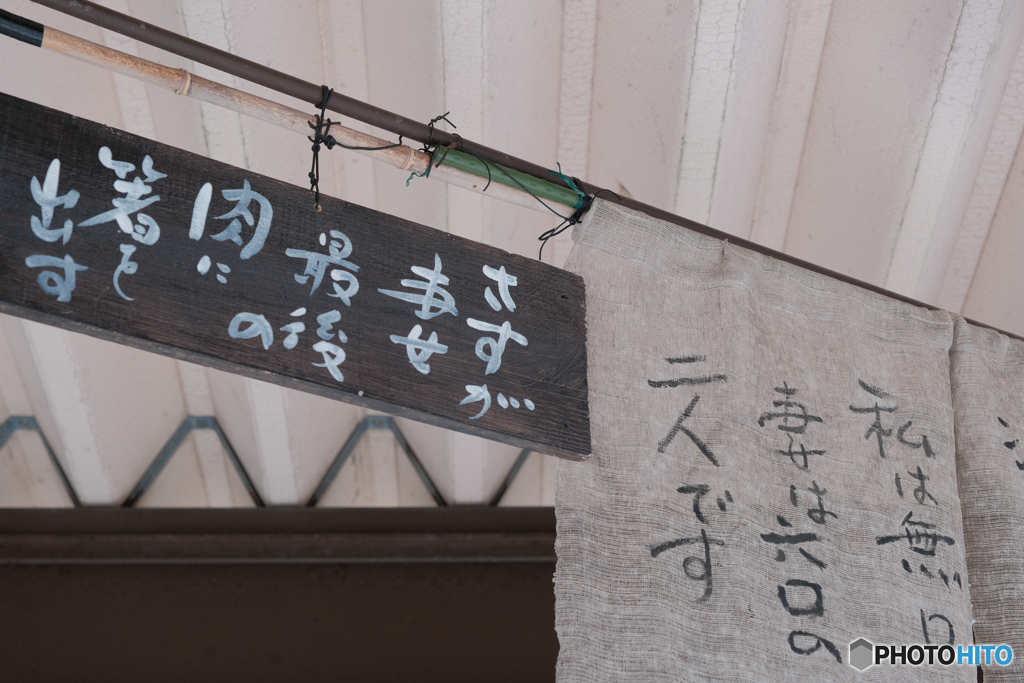 さすが
妻
最後の
肉に
箸を
出す
私は無口
妻は六口の
二人です
PHOTOHITO